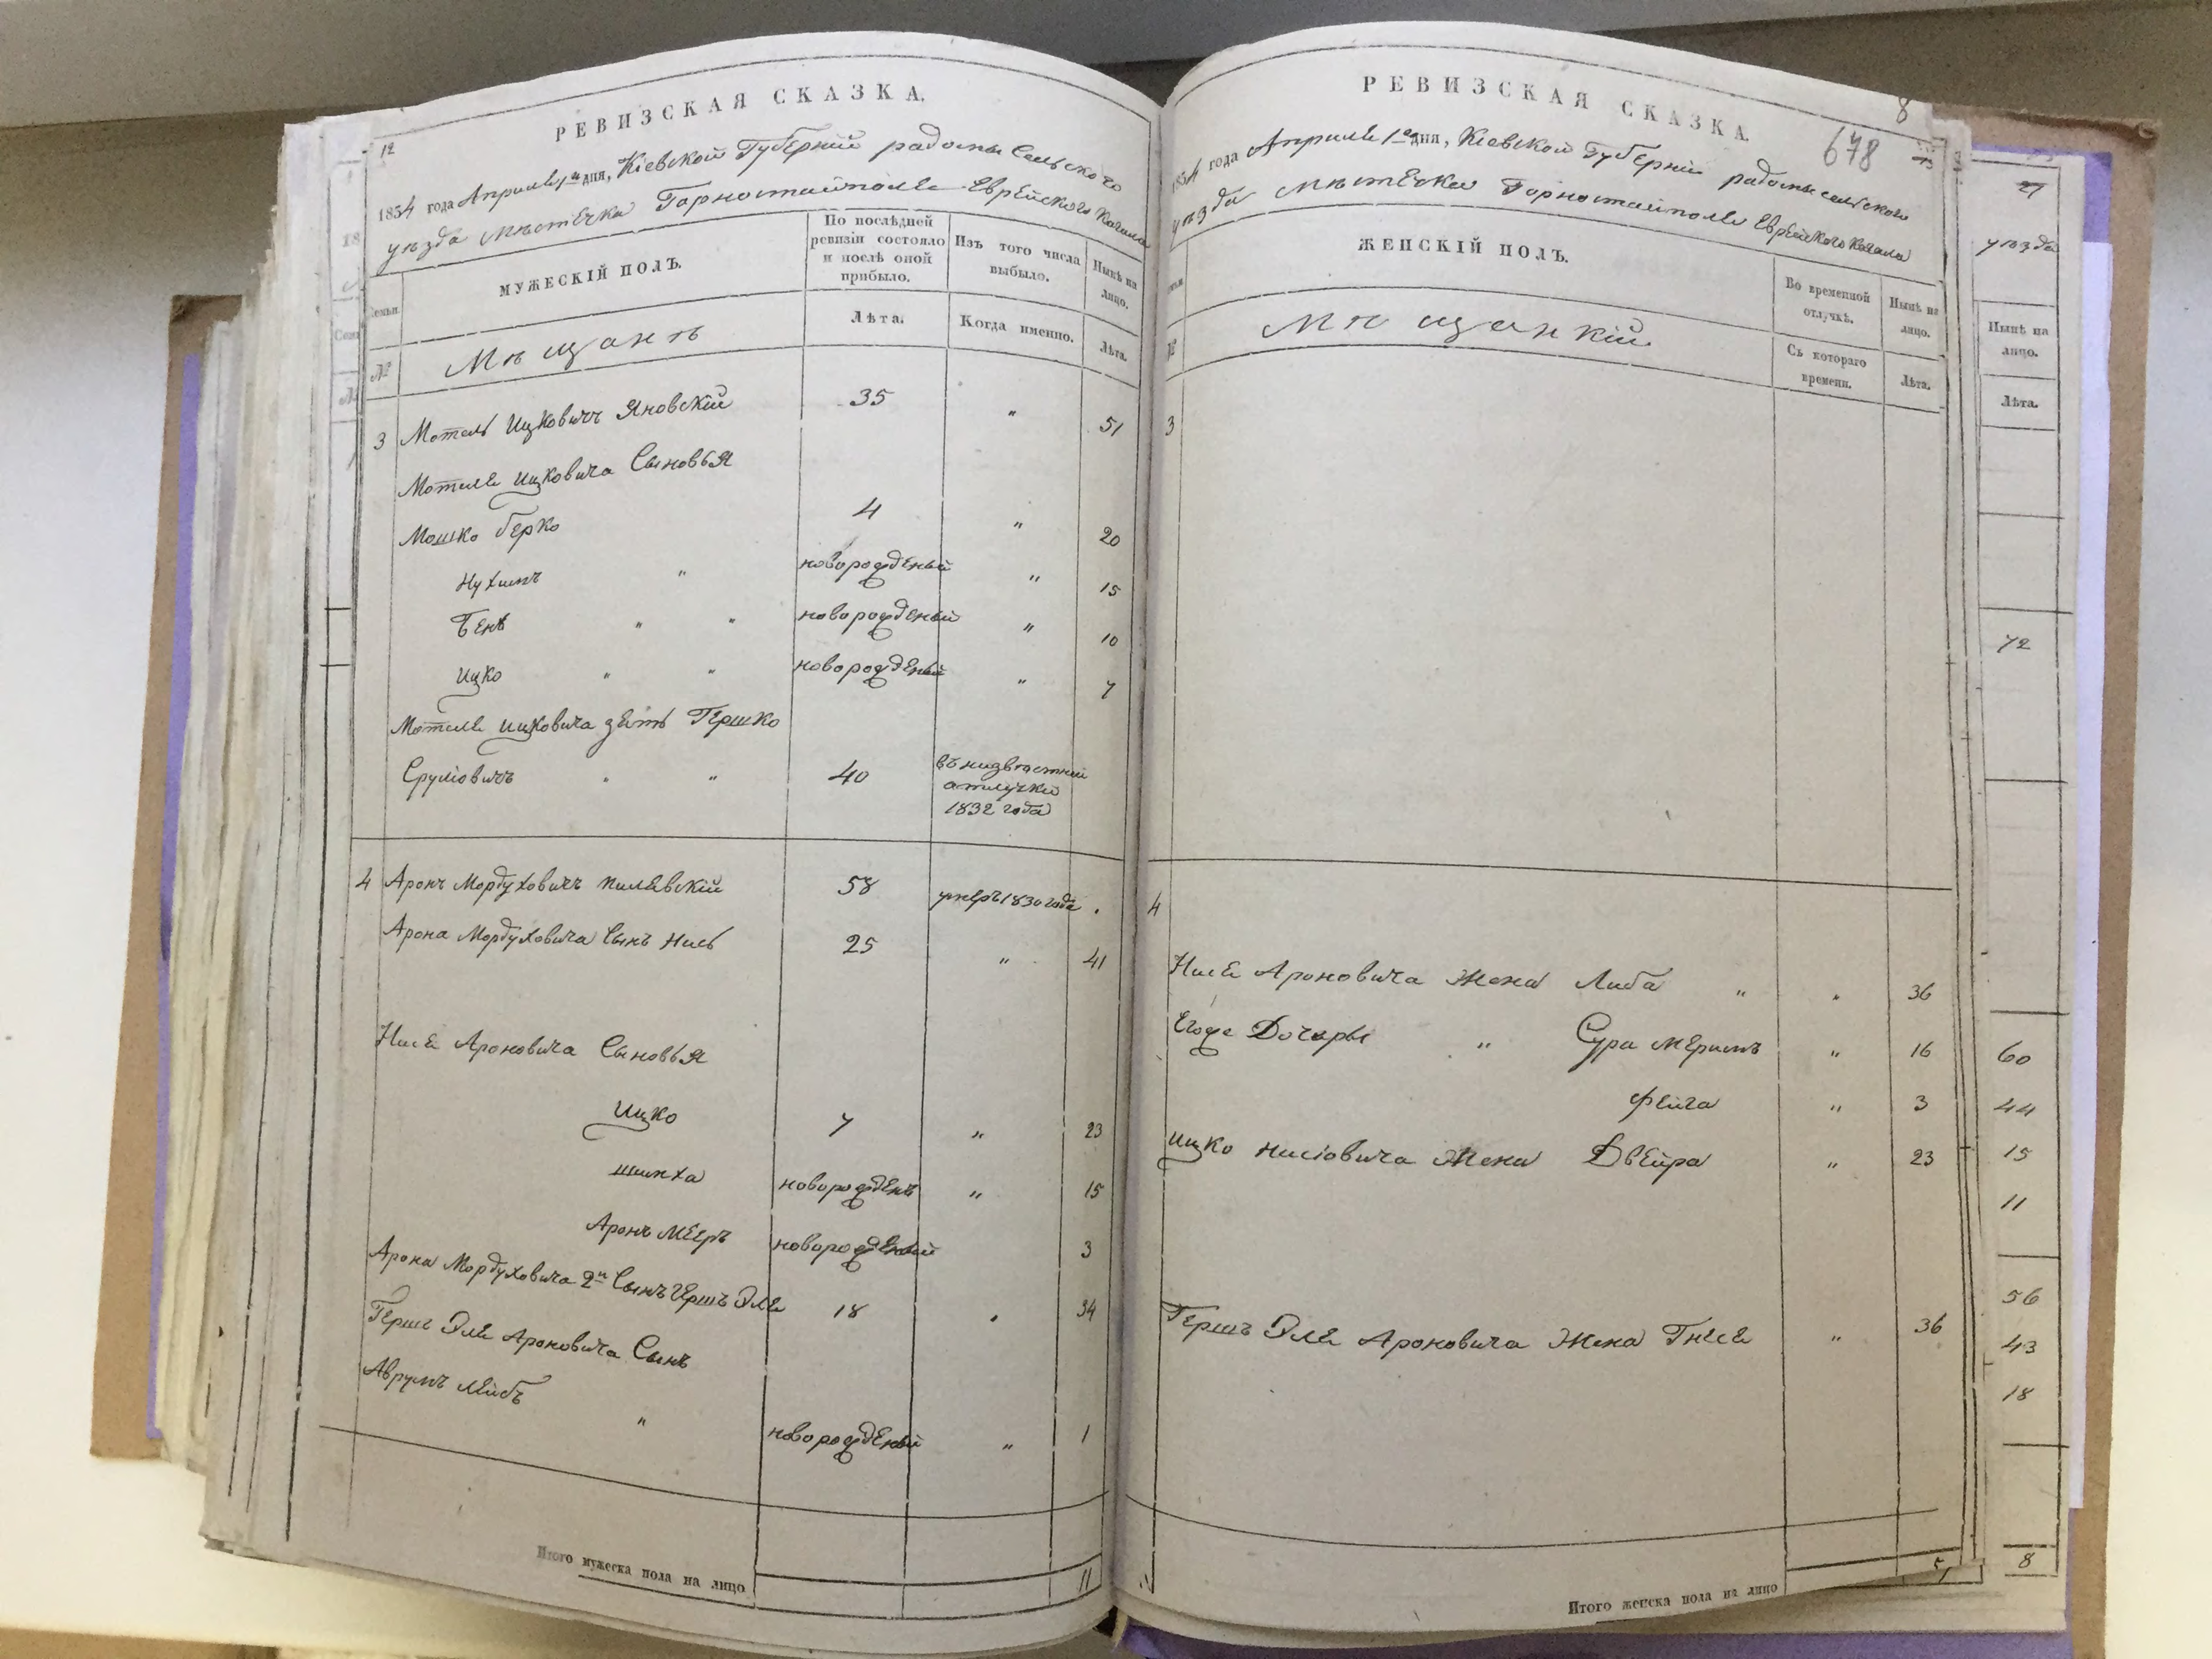 12
РЕВИЗСКАЯ СКАЗКА.
1834 года Апреля 1го дня, Кіевской Губерніи радомысельского
уезда местечка Горностайполя Еврейского Кагала
Семьи.
МУЖЕСКІЙ ПОЛЪ.
По послѣдней ревизіи состояло и послѣ оной прибыло.
Изъ того числа выбыло.
Нынѣ на лицо.
№
Мѣщанъ
Лѣта.
Когда именно.
Лѣта.
3 Мотель Ицковичъ Яновскій 35 " 51
Мотеля Ицковича Сыновья
Мошко Берко 4 " 20
Нухимъ " новорожденый " 15
Беня " " новорожденый " 10
Ицко " " новорожденый " 7
Мотеля Ицковича зять Гершко
Сруліовичъ " " 40 въ низвѣстний
атлучки
1832 года
4 Аронъ Мордуховичъ Пилявскій 58 умеръ 1830 года .
Арона Мордуховича Сынъ Нись 25 " 41
Нися Ароновича Сыновья
Ицко 7 " 23
Шимха новорожденъ " 15
Аронъ Мееръ новорожденый 3
Арона Мордуховича 2й Сынъ Гершъ Эля 18 " 34
Гершъ Эля Ароновича Сынъ
Аврумъ Лейбъ
" новорожденый " 1
Итого мужеска пола на лицо 11
РЕВИЗСКАЯ СКАЗКА.
8
678
13
1834 года Апреля 1го дня, Кіевской Губерніи радомысельского
уезда местечка Горностайполя Еврейского Кагала
ЖЕНСКІЙ ПОЛЪ.
Во временной отлучкѣ.
Нынѣ на лицо.
№
Мѣщанкій
Съ котораго времени.
Лѣта.
3
4
Нися Ароновича Жена Либа " " 36
Егоже Дочеры " Сура Меримъ " 16
Фейга " 3
Ицко Нисіовича Жена Двейра " 23
Гершъ Эля Ароновича Жена Гнеся " 36
Итого женска пола на лицо 5
уезда
Нынѣ на лицо.
Лѣта.
72
60
44
15
11
56
43
18
8